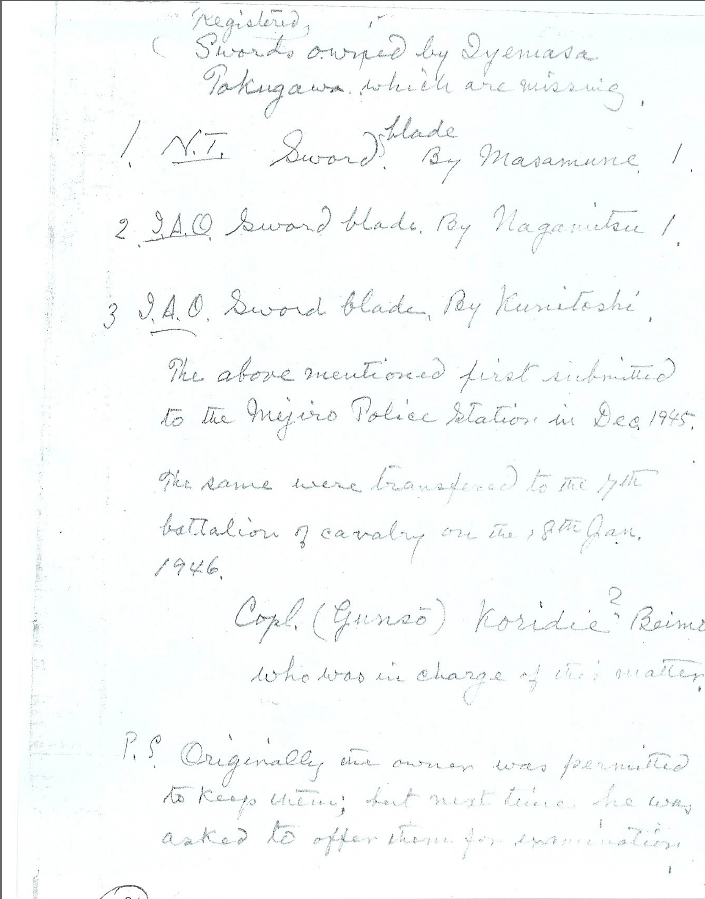 Registered,
( Swords owned by Iyemasa
Tokugawa which are missing.
1. N.T. Sword blade. By Masamune. 1.
2. I.A.O. Sword blade. By Nagamitsu 1.
3 I.A.O. Sword blade. By Kunitoshi.
The above mentioned first submitted
to the Mejiro Police Station in Dec, 1945.
The same were transfered to the 7th
battalion of cavalry on the 18th Jan.
1946.
Copl. (Gunsō) Koridie? Beime
who was in charge of this matter
P.S. Originally the owner was permitted
to keep them; but next time he was
asked to offer them for examination